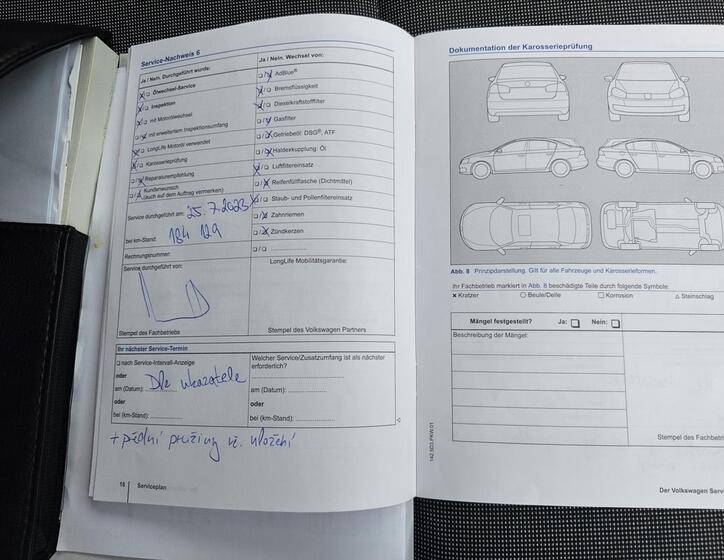 Service-Nachweis 6
Ja / Nein. Durchgeführt wurde:
Ölwechsel-Service
Inspektion
mit Motorölwechsel
mit erweitertem Inspektionsumfang
LongLife Motoröl verwendet
Karosserieprüfung
Reparaturempfehlung
Kundenwunsch
(auch auf dem Auftrag vermerken)
Service durchgeführt am: 25.7.2023
bei km-Stand: 184 129
Rechnungsnummer:
Service durchgeführt von:
Stempel des Fachbetriebs
Ja / Nein. Wechsel von:
AdBlue®
Bremsflüssigkeit
Dieselkraftstofffilter
Gasfilter
Getriebeöl: DSG®, ATF
Haldexkupplung: Öl
Luftfiltereinsatz
Reifenfüllflasche (Dichtmittel)
Staub- und Pollenfiltereinsatz
Zahnriemen
Zündkerzen
LongLife Mobilitätsgarantie:
Stempel des Volkswagen Partners
Ihr nächster Service-Termin
nach Service-Intervall-Anzeige
oder
am (Datum): Dle ukazatele
oder
bei (km-Stand):
Welcher Service/Zusatzumfang ist als nächster
erforderlich?
am (Datum):
oder
bei (km-Stand):
+ přední pružiny vč. uložení
16 Serviceplan
Dokumentation der Karosserieprüfung
Abb. 8 Prinzipdarstellung. Gilt für alle Fahrzeuge und Karosserieformen.
Ihr Fachbetrieb markiert in Abb. 8 beschädigte Teile durch folgende Symbole:
× Kratzer ○ Beule/Delle □ Korrosion △ Steinschlag
Mängel festgestellt? Ja: Nein:
Beschreibung der Mängel:
Stempel des Fachbetri
142.5D3.PKW.01
Der Volkswagen Serv